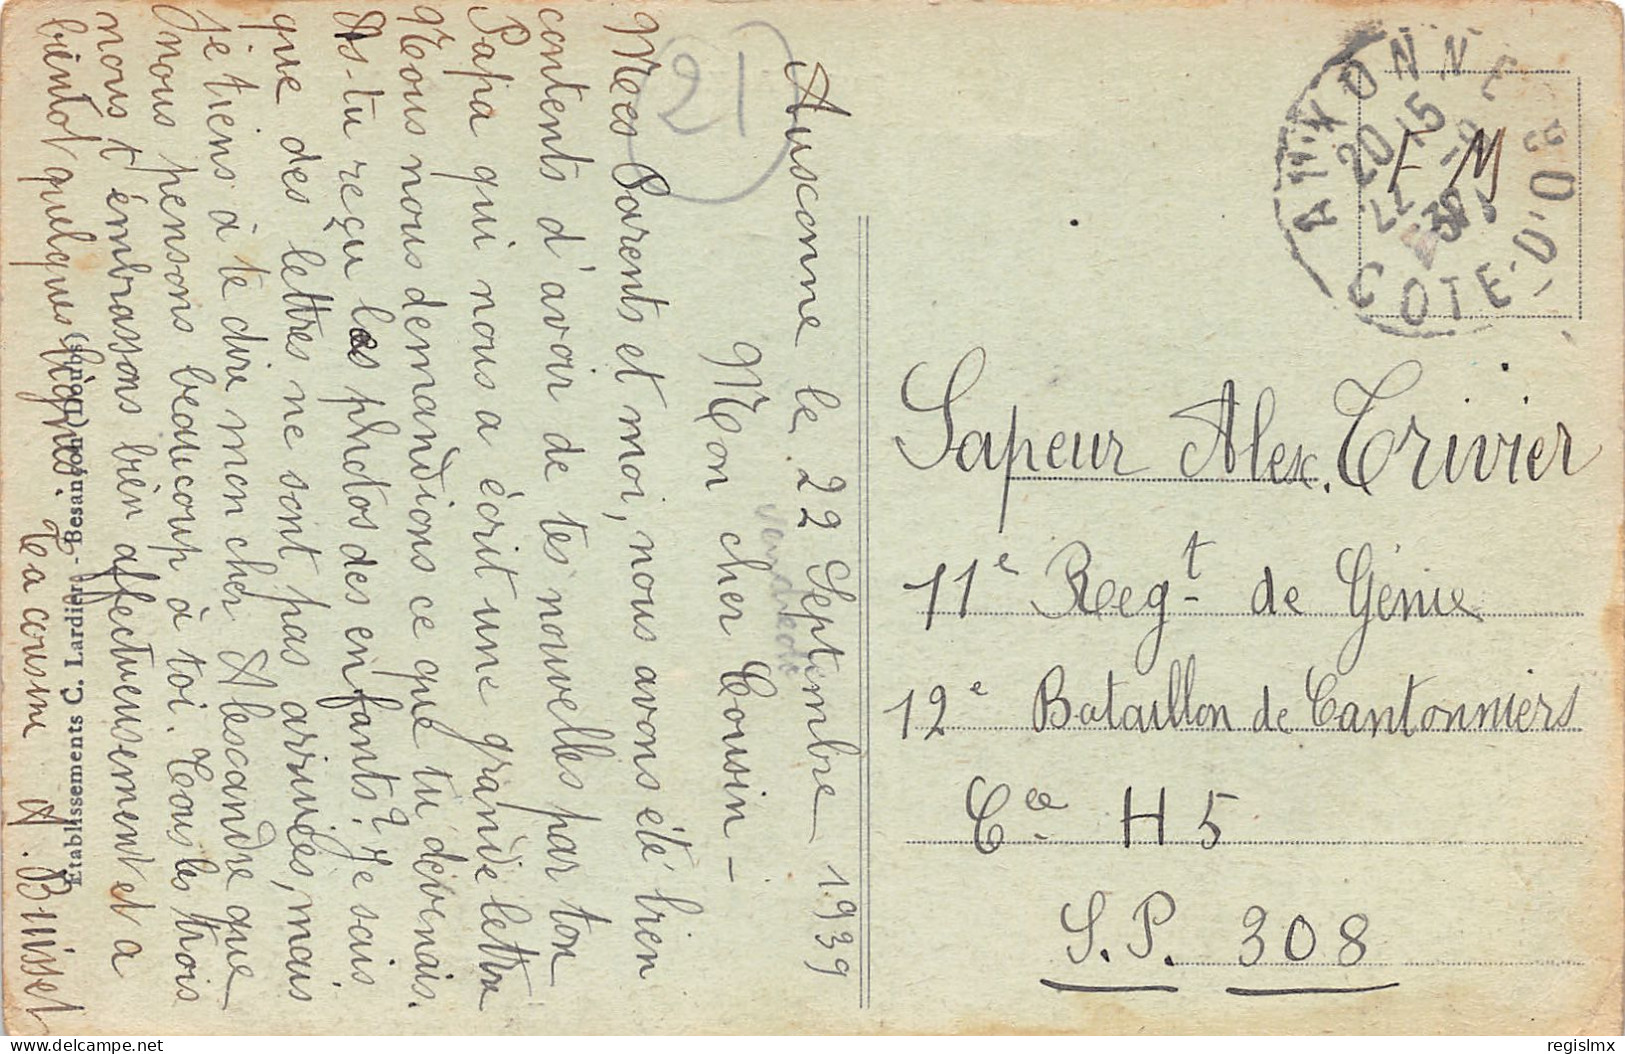 Ausconne le 22 Septembre 1939
Mon cher Cousin -
Mees Parents et moi, nous avons été bien
contents d'avoir de tes nouvelles par ton
Papa qui nous a écrit une grande lettre
Nous nous demandions ce que tu devenais.
As-tu reçu les photos des enfants? Je sais
que des lettres ne sont pas arrivées, mais
je tiens à te dire mon cher Alescandre que
nous pensons beaucoup à toi. Tous les trois
nous t'émbrassons bien affectueusement et a
bientot quelques lignes
Ta cousine A. Buisset
Etablissements C. Lardier - Besançon (Doubs)
21
AUXONNE
20 15
22 -9
39
COTE-D'OR
F M
Sapeur Alex. Trivier
11e Regt de Génie
12e Bataillon de Cantonniers
Cie H 5
S.P. 308
delcampe.net
regislmx